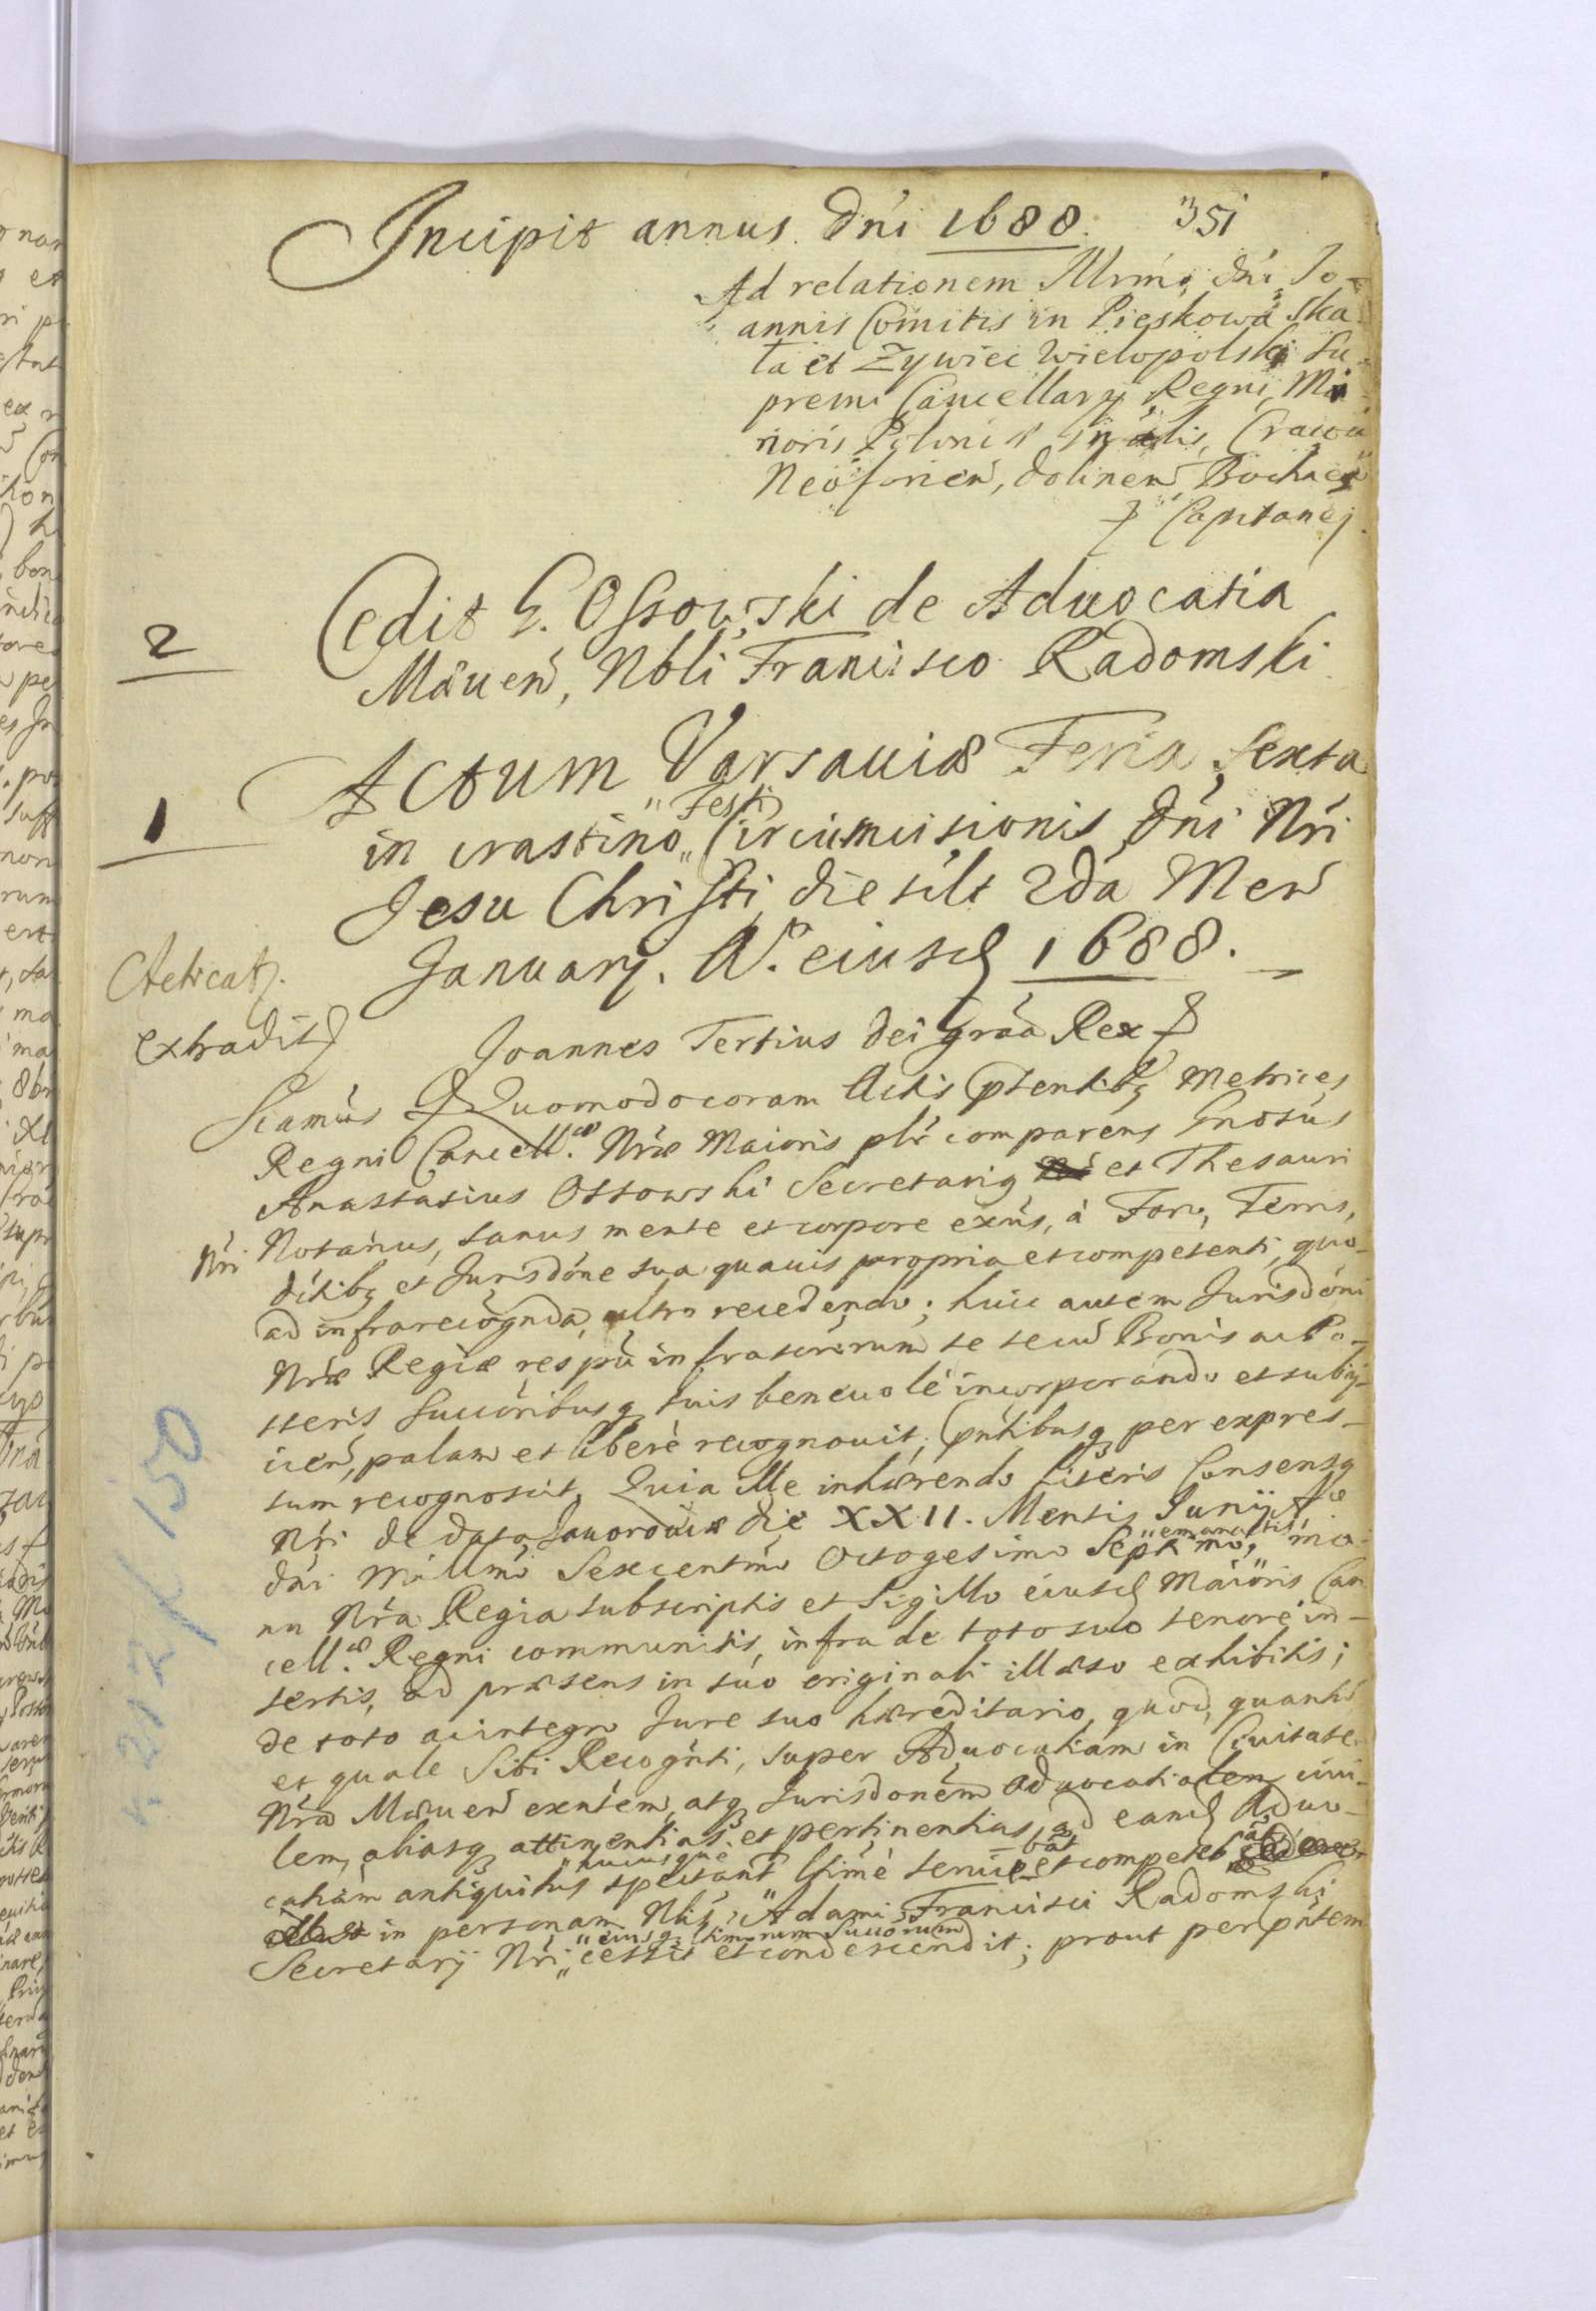 Incipit annus Dni 1688. 351
Ad relationem Illrmi Dni Jo-
annis Comitis in Pieskowa Ska
ła et Zywiec Wielopolski Su
premi Cancellarij Regni, Mi
noris Poloniæ Gnalis, Cracou
Neoforien, Dolinen Bochnen
Capitanej
2
Cedit G. Ossowski de Aduocatia
Mæuen, Nbli Francisco Radomski
1
Actum Varsauiæ Feria Sexta
in crastino "Festi" Circumcisionis Dni Nri
Jesu Christi, die scilt 2da Men
January. Ao. eiusd 1688.
extradit
Joannes Tertius Dei gráa Rex
Scamus Quomodo coram Actis pntentibq Metrices
Regni Cancell.æ Nræ Maioris plr comparens Gnosus
Anastasius Ossowski Secretariq et Thesauri
Nri Notarius, sanus mente et corpore exns, à Foro, Terris,
ditibq et Jurisdone sua quauis propria et competenti, quo-
ad infrarecognda ultro recedendo; huic autem Jurisdoni
Nræ Regiæ respu infrascrorum se secu Bonis ac Po-
steris Succoribusq suis beneuole incorporando et subij-
cien, palam et liberè recognouit, pntibusq per expres-
sum recognoscit, Quia Ille inhærendo Literis Consensq
Nri de data Jauorouiæ die XXII. Mensis Junij Ao
Dni Millmo Sexcentmo Octogesimo Septimo, "emanatis" ma
nu Nra Regia subscriptis et Sigillo eiusd Maioris Can
cell.æ Regni communitis, infra de toto suo tenore in-
sertis, ad præsens in suo originali illæso exhibitis;
de toto ac integro Jure suo hæreditario, quod, quantu
et quale Sibi Recognti, super Aduocatiam in Ciuitate
Nra Mæuen exntem, atq Jurisdonem Aduocatialem ciui-
lem, aliasq attinentias et pertinentias, ad eand Aduo-
catiam antiquitus "hucusque" spectant ltimè seruie bat et competebat
in personam Nblis Adami Francisci Radomski
Secretarij Nri, "eiusq ltimorum Succorum" cessit et condescendit; prout per pntem